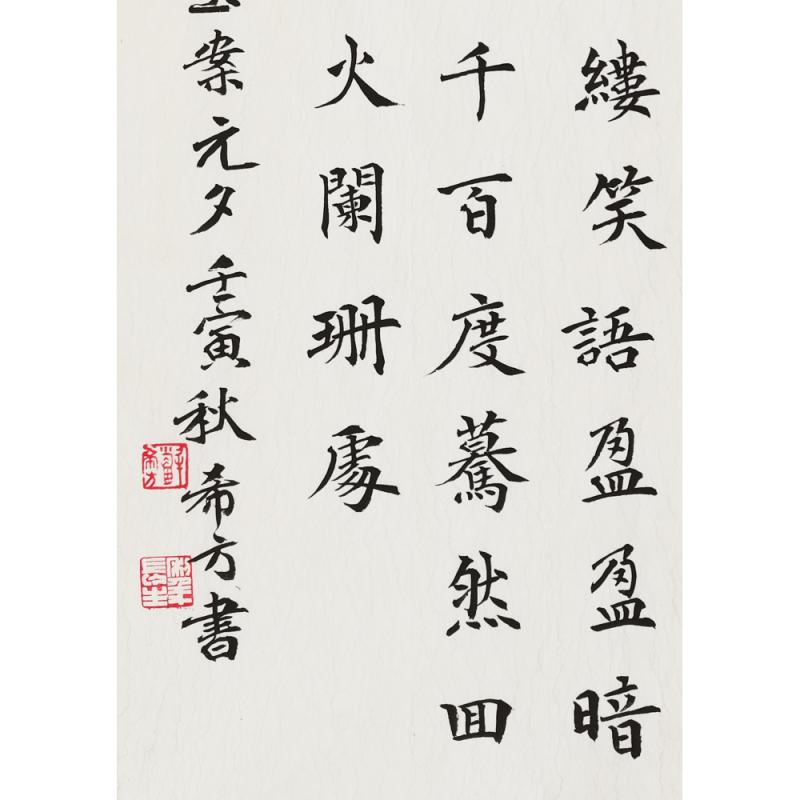 縷笑語盈盈暗
千百度驀然回
火闌珊處
玉案元夕壬寅秋希方書